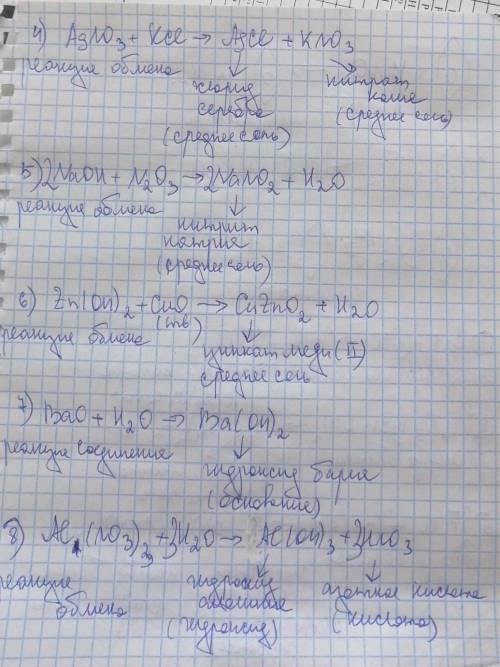 4) AgNO₃ + KCl → AgCl + KNO₃
реакция обмена
хлорид
серебра
(среднее соль)
нитрат
калия
(среднее соль)
5) 2NaOH + N₂O₃ → 2NaNO₂ + H₂O
реакция обмена
нитрит
натрия
(среднее соль)
6) Zn(OH)₂ + CuO → CuZnO₂ + H₂O
(тв)
реакция обмена
цинкат меди (II)
среднее соль
7) BaO + H₂O → Ba(OH)₂
реакция соединения
гидроксид бария
(основание)
8) Al (NO₃)₃ + 3H₂O → Al(OH)₃ + 3HNO₃
реакция
обмена
гидроксид
алюминия
(гидроксид)
азотная кислота
(кислота)